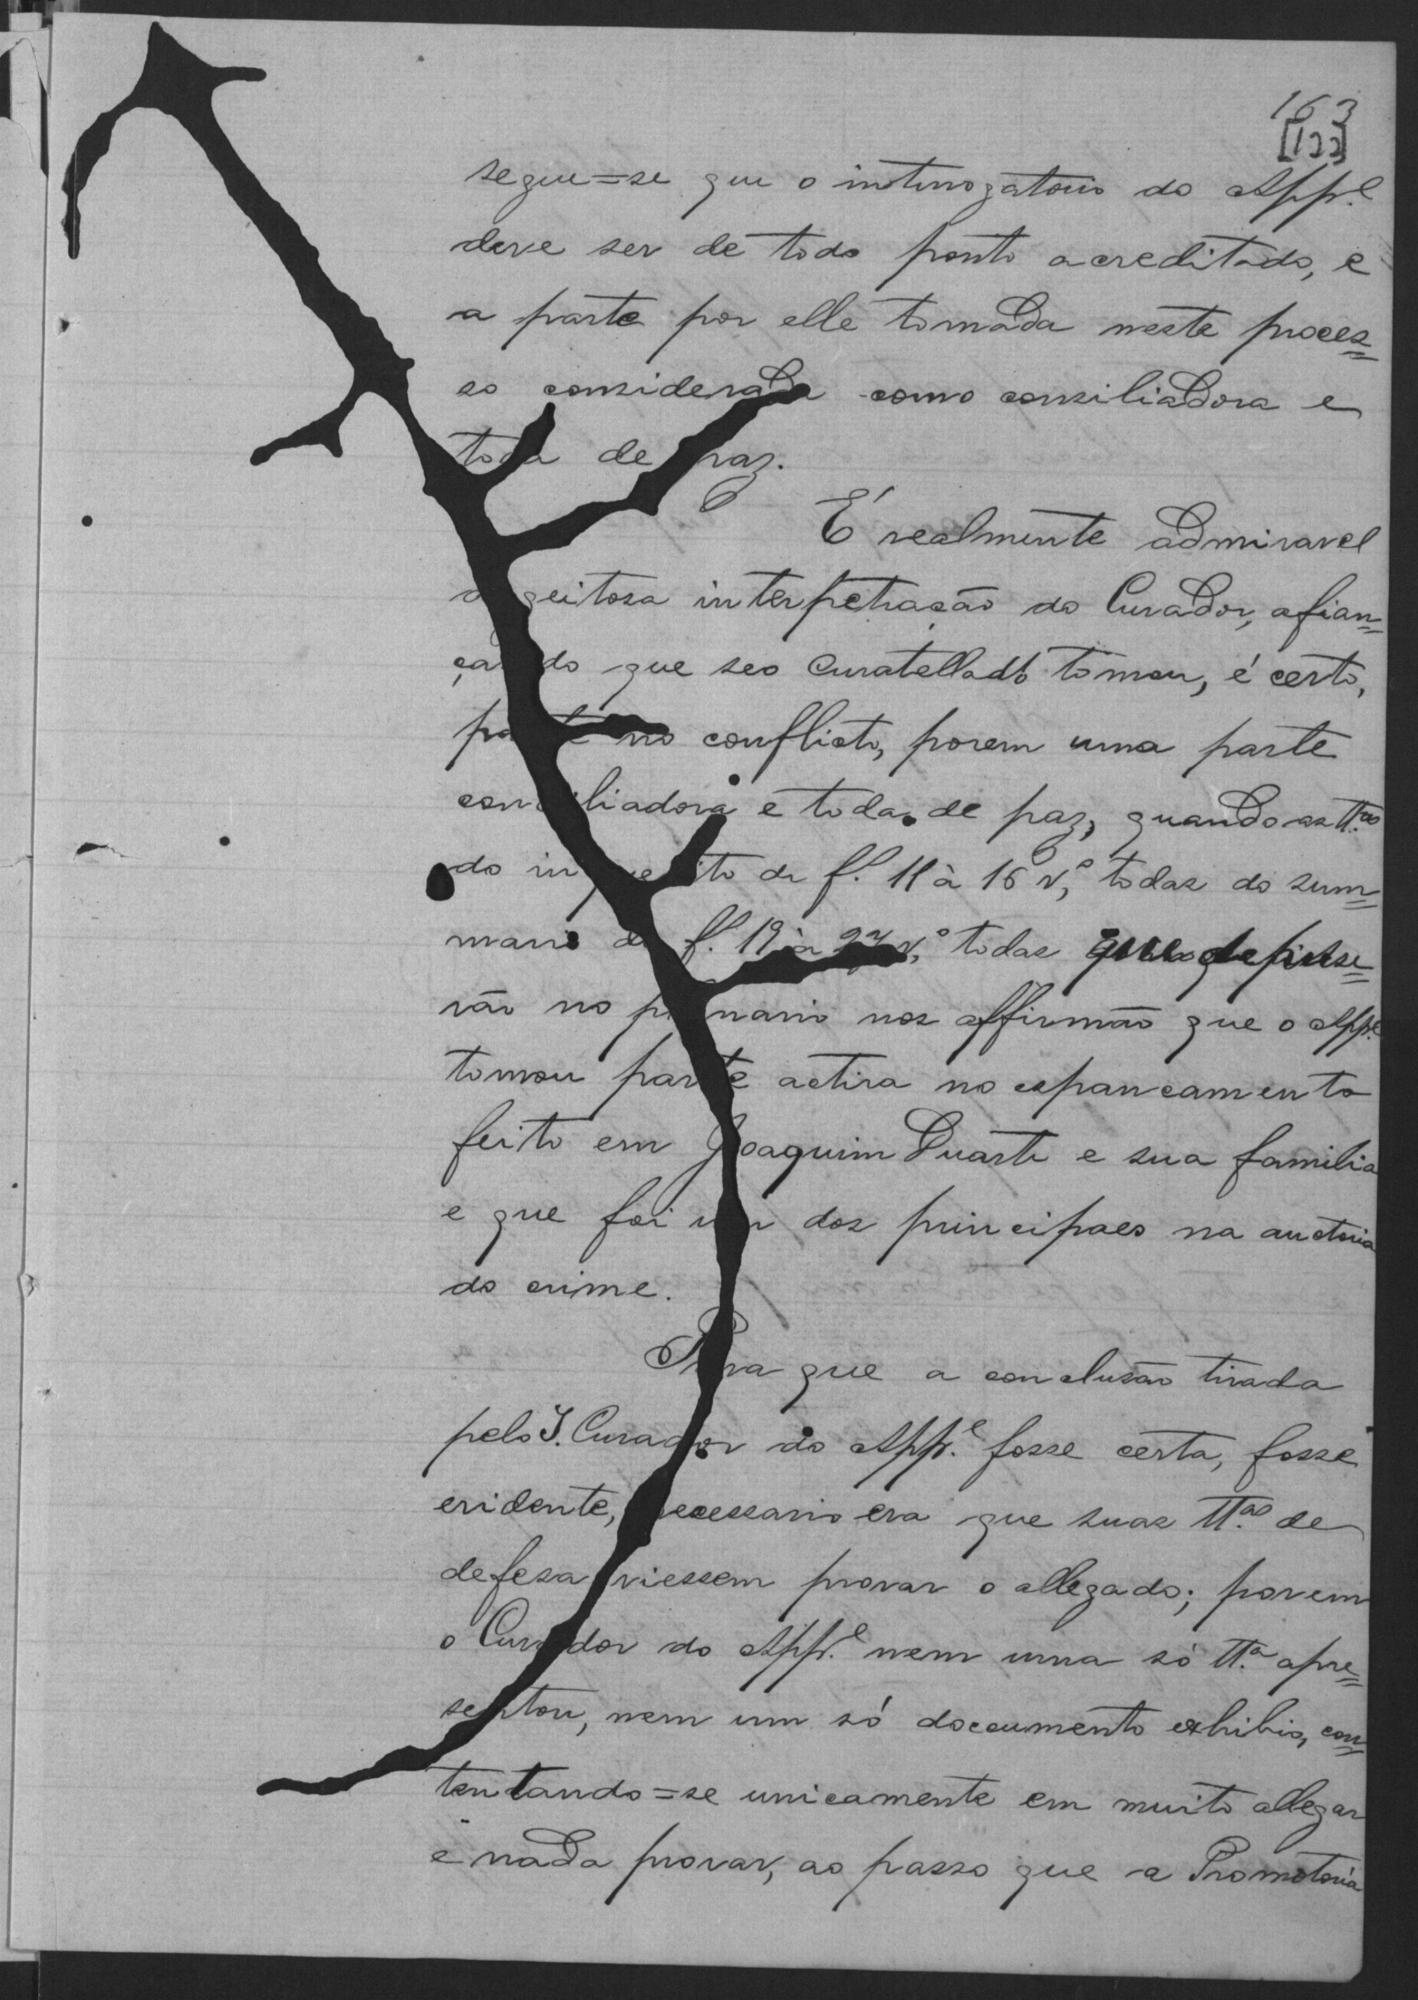 163
[122]
segue=se que o interrogatorio do App.e
deve ser de todo ponto acreditado, e
a parte por elle tomada neste proces=
so considerada como consiliadora e
toda de paz.
É realmente admiravel
a geitosa interpetração do Curador, afian=
çando que seo curatellado tomou, é certo,
parte no conflicto, porem uma parte
conciliadora e toda de paz, quando as tt.as
do inquerito de f. 11 à 16 v,º todas do sum=
mario de f. 19 à 27 v,º todas que depuse=
rão no plenario nos affirmão que o App.e
tomou parte activa no espancamento
feito em Joaquim Duarte e sua familia
e que foi um dos principaes na auctoria
do crime.
Para que a conclusão tirada
pelo I. Curador do App.e fosse certa, fosse
evidente, necessario era que suas tt.as de
defesa viessem provar o allegado; porem
o Curador do App.e nem uma só tt.a apre=
sentou, nem um só documento exhibio, con=
tentando=se unicamente em muito allegar
e nada provar, ao passo que a Promotoria